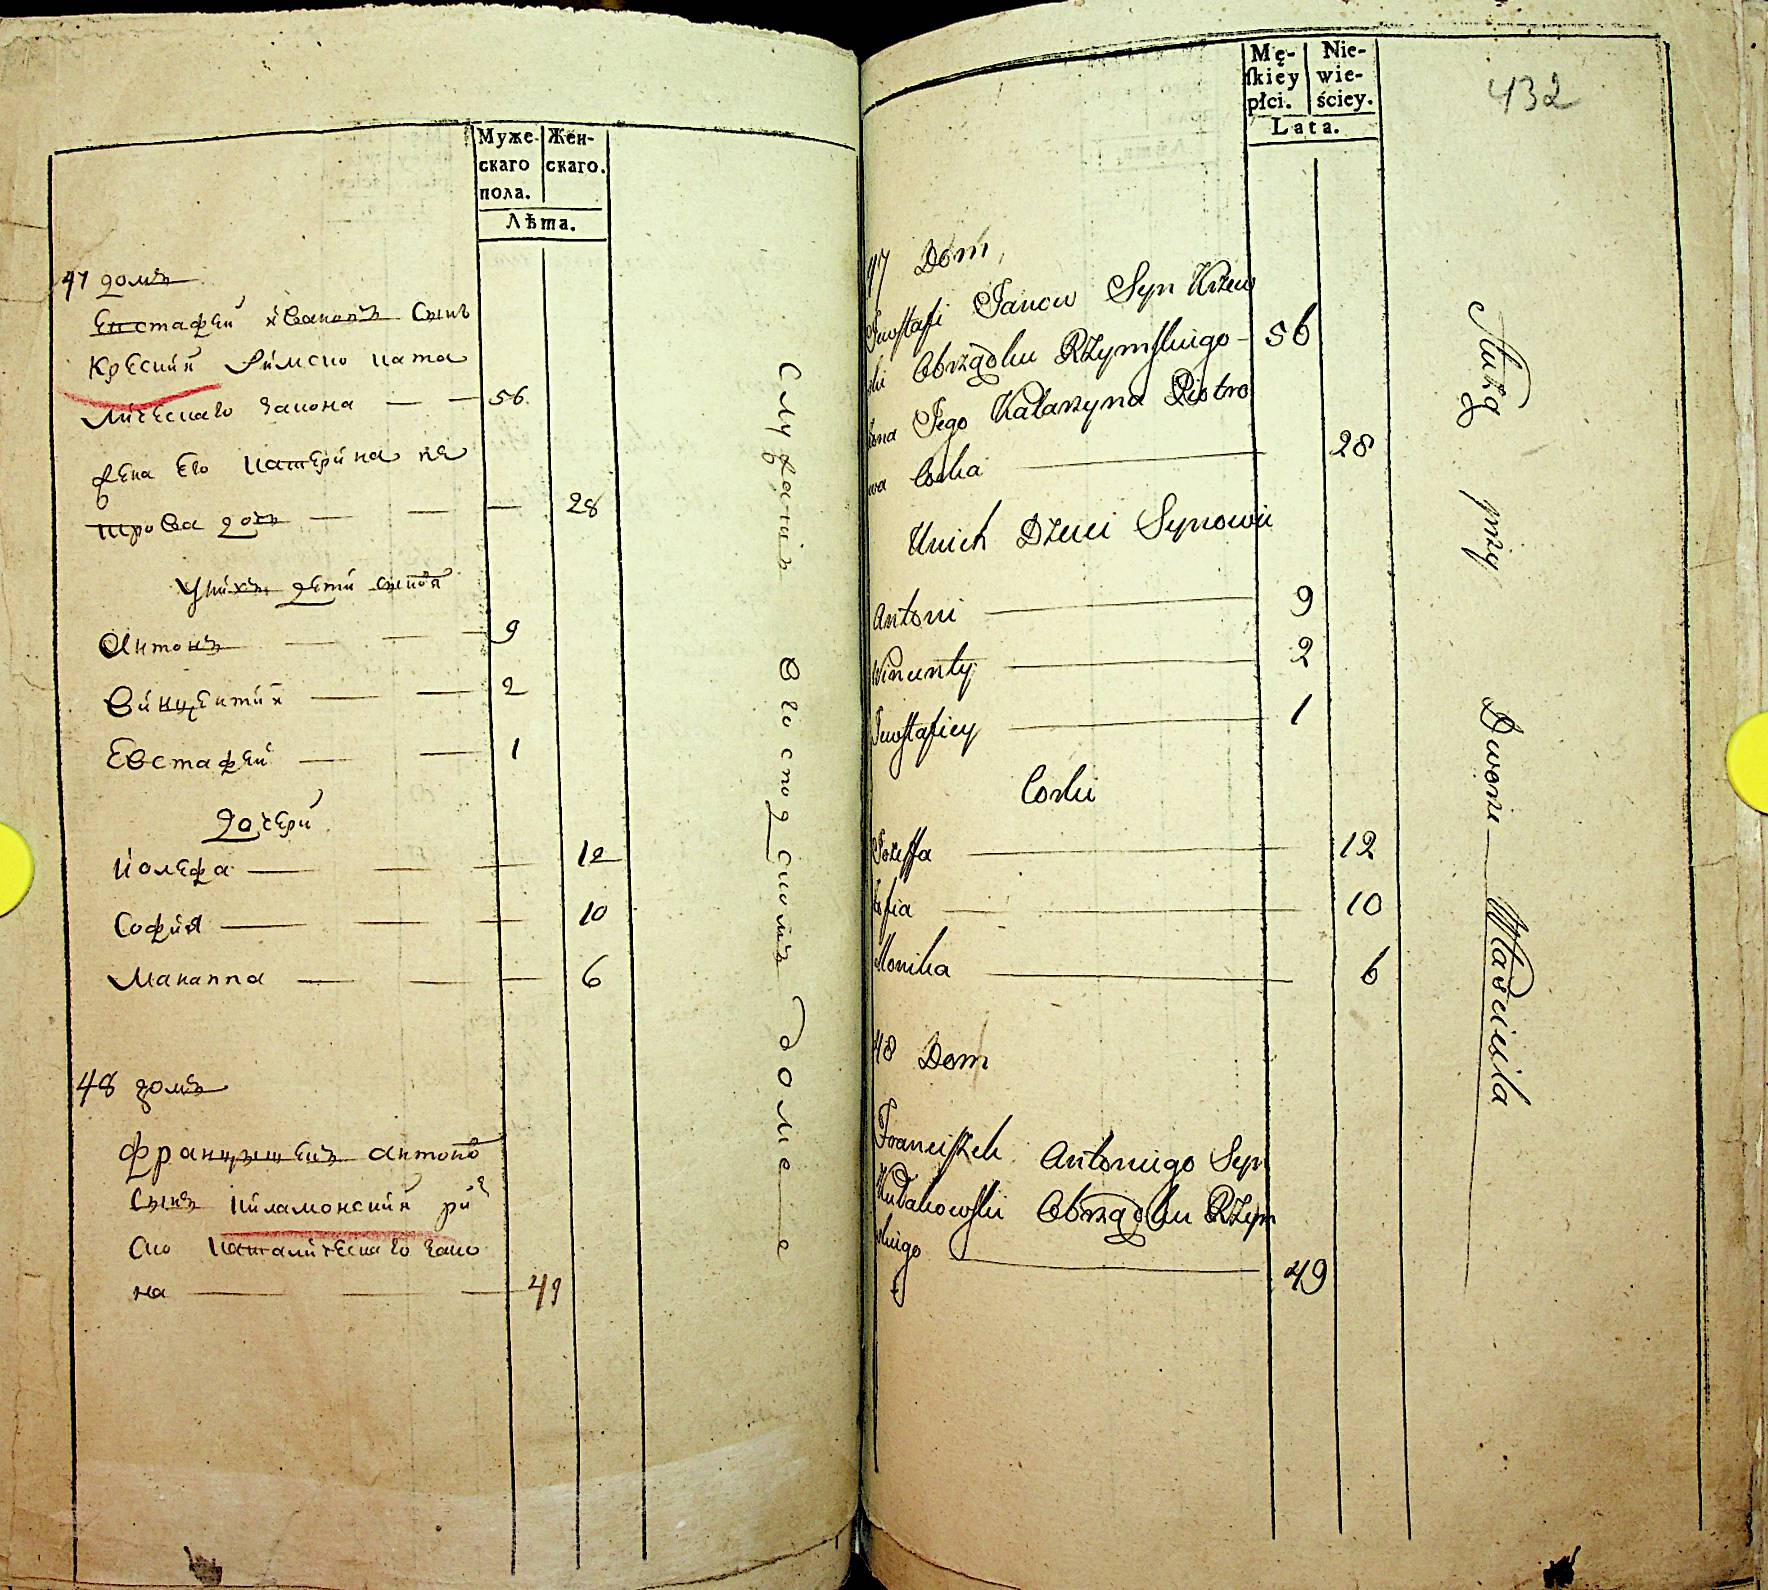 Муже-
скаго
пола.
Жен-
скаго.
Лѣта.
47 домъ
Евстафей Иванов Сынъ
Кресий Римско ката
лическаго закона — — 56
жена Его Катерина пе
трова дочь — — — 28
У них дети сынов
Антонъ — — 9
Винцентий — — 2
Евстафей — — 1
Дочери
Иозефа — — — 12
София — — — 10
Марианна — — — 6
48 домъ
Францышекъ Антонов
Сынъ рим
ско католическаго зако
на — — — 49
Служатъ в господскомъ доме
Mę-
skiey
płci.
Nie-
wie-
ściey.
Lata.
432
47 Dom
Ewstafi Janow Syn Krzew
ski Obrządku Rzymskiego — 56
Żona Jego Katarzyna Piotro
wa Corka — 28
U nich Dzieci Synowie
Antoni — 9
Wincenty — 2
Ewstafiey — 1
Corki
Jozeffa — 12
Zofia — 10
Monika — 6
48 Dom
Franciszek Antoniego Syn
Obrządku Rzym
skiego — 49
Służą przy Dworze — Właściciela